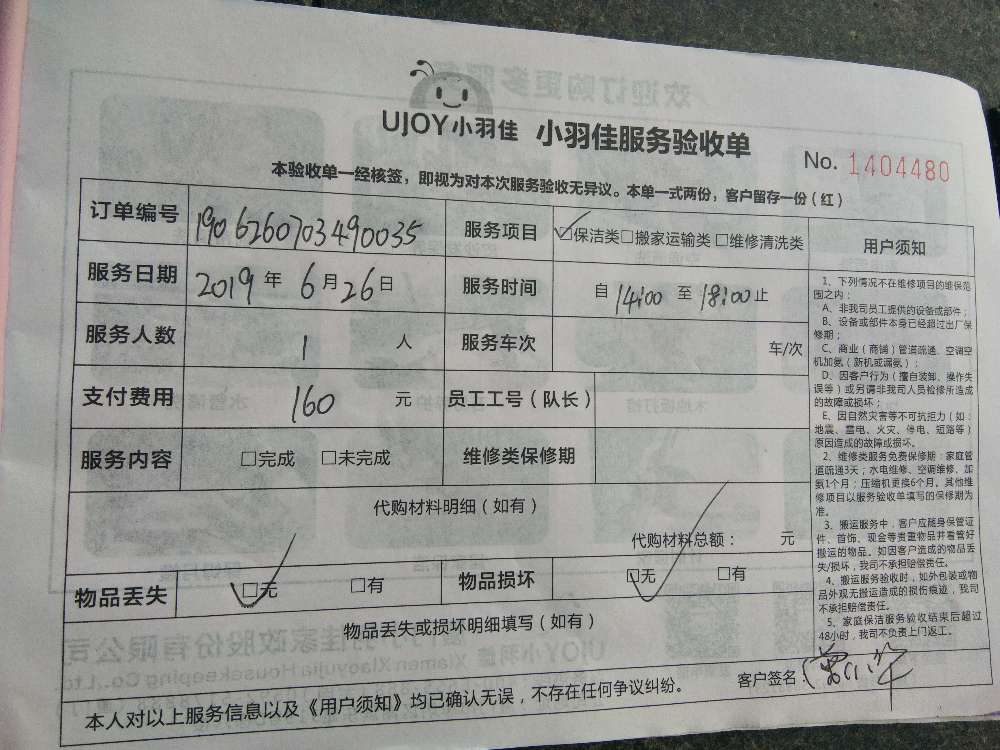 UJOY小羽佳 小羽佳服务验收单
No. 1404480
本验收单一经核签，即视为对本次服务验收无异议。本单一式两份，客户留存一份（红）
订单编号 1906260703490035 服务项目 ☑保洁类□搬家运输类□维修清洗类
服务日期 2019年6月26日 服务时间 自14:00至18:00止
服务人数 1人 服务车次 车/次
支付费用 160元 员工工号（队长）
服务内容 □完成 □未完成 维修类保修期
代购材料明细（如有）
代购材料总额： 元
物品丢失 ☑无 □有 物品损坏 ☑无 □有
物品丢失或损坏明细填写（如有）
客户签名：
本人对以上服务信息以及《用户须知》均已确认无误，不存在任何争议纠纷。
用户须知
1、下列情况不在维修项目的维保范
围之内：
A、非我司员工提供的设备或部件；
B、设备或部件本身已经超过出厂保
修期；
C、商业（商铺）管道疏通、空调空
机加氨（新机或漏氨）；
D、因客户行为（擅自装卸、操作失
误等）或另请非我司人员检修所造成
的故障或损坏；
E、因自然灾害等不可抗拒力（如：
地震、雷电、火灾、停电、短路等）
原因造成的故障或损坏。
2、维修类服务免费保修期：家庭管
道疏通3天；水电维修、空调维修、加
氨1个月；压缩机更换6个月。其他维
修项目以服务验收单填写的保修期为
准。
3、搬运服务中，客户应随身保管证
件、首饰、现金等贵重物品并看管好
搬运的物品。如因客户造成的物品丢
失/损坏，我司不承担赔偿责任。
4、搬运服务验收时，如外包装或物
品外观无搬运造成的损伤痕迹，我司
不承担赔偿责任。
5、家庭保洁服务验收结束后超过
48小时，我司不负责上门返工。